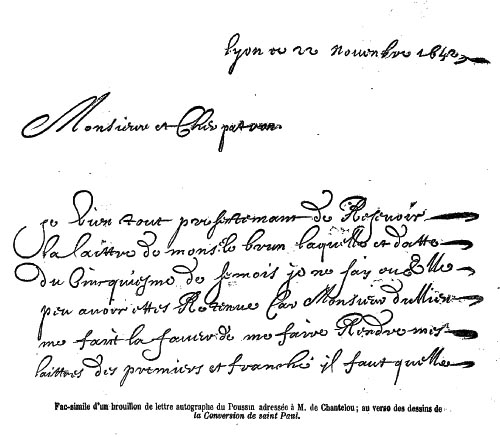 lyon ce 22 novenbre 1642
Monsieur et Cher patron
Je vien tout presentemant de Resevoir
la laittre de mons.r le brun laquelle et datte
du Cincquiesme de se mois je ne say ou Elle
peu avoir ettes Retenue Car Monsieur du Lieu
me faict la faveur de me faire Rendre mes
laittres des premiers et franche il faut quelle
Fac-simile d'un brouillon de lettre autographe du Poussin adressée à M. de Chantelou; au verso des dessins de
la Conversion de saint Paul.